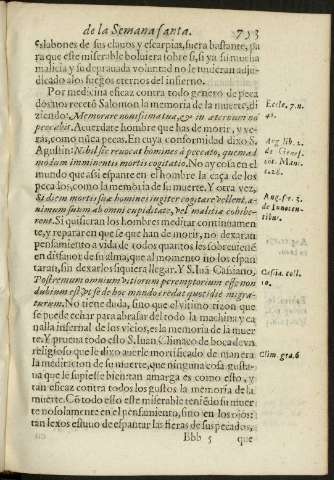 de la Semana santa. 753
eslabones de sus clauos y escarpias, fuera bastante, pa
ra que este miserable boluiera sobre si, si ya su mucha
malicia y su deprauada voluntad no le tuuieran adju-
dicado a los fuegos eternos del infierno.
Por medicina eficaz contra todo genero de peca
dos nos recetó Salomon la memoria de la muerte, di
ziendo: Memorare nouissima tua, & in æternum no
peccabis. Acuerdate hombre que has de morir, y ve-
ras, como nũca pecas. En cuya conformidad dixo S.
Agustin: Nihil sic reuocat homines à peccato, quemad
modum imminentis mortis cogitatio. No ay cosa en el
mundo que assi espante en el hombre la caça de los
pecados, como la memoria de su muerte. Y otra vez,
Si diem mortis suæ homines iugiter cogitare vellent, a-
nimum suum ab omni cupiditate, vel malitia cohibe-
rent. Si quisieran los hombres meditar continuamen
te, y reparar en que se que han de morir, no dexaran
pensamiento a vida de todos quantos les sobreuienẽ
en disfauor de su alma, que al momento no los espan
taran, sin dexarlos siquiera llegar. Y S. Iuã Casiano,
Postremum omnium vitiorum peremptorium esse non
dubium est, vt se de hoc mundo credat quotidie migra-
turum. No tiene duda, sino que el vltimo tizon que
se puede echar para abrasar del todo la machina y ca
nalla infernal de los vicios, es la memoria de la muer
te. Y prueua todo esto S. Iuan Climaco de boca de vn
religioso que le dixo auerle mortificado de manera
la meditacion de su muerte, que ninguna cosa gusta-
ua que le supiesse bien: tan amarga es como esto, y
tan eficaz contra todos los gustos la memoria de la
muerte. Cõ todo esto este miserable teniẽdo su muer
te no solamente en el pensamiento, sino en los ojos:
tan lexos estuuo de espantar las fieras de sus pecados,
Bbb 5 que
Eccle. 7. n.
40.
Aug lib. 2.
de Genes.
cot. Man.
c.28.
Aug. ser. 3.
de Innocen-
tibus.
Casia. coll.
10.
Clim. gra. 6